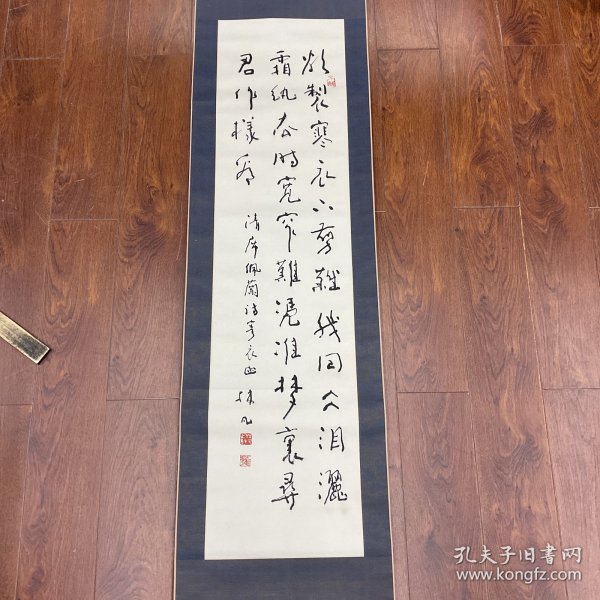 欲製寒衣下剪難幾回冰泪灑
霜紈去時寬窄難憑准梦裏尋
君作樣看 清席佩蘭詩寄衣曲 林凡
孔夫子旧书网
www.kongfz.com